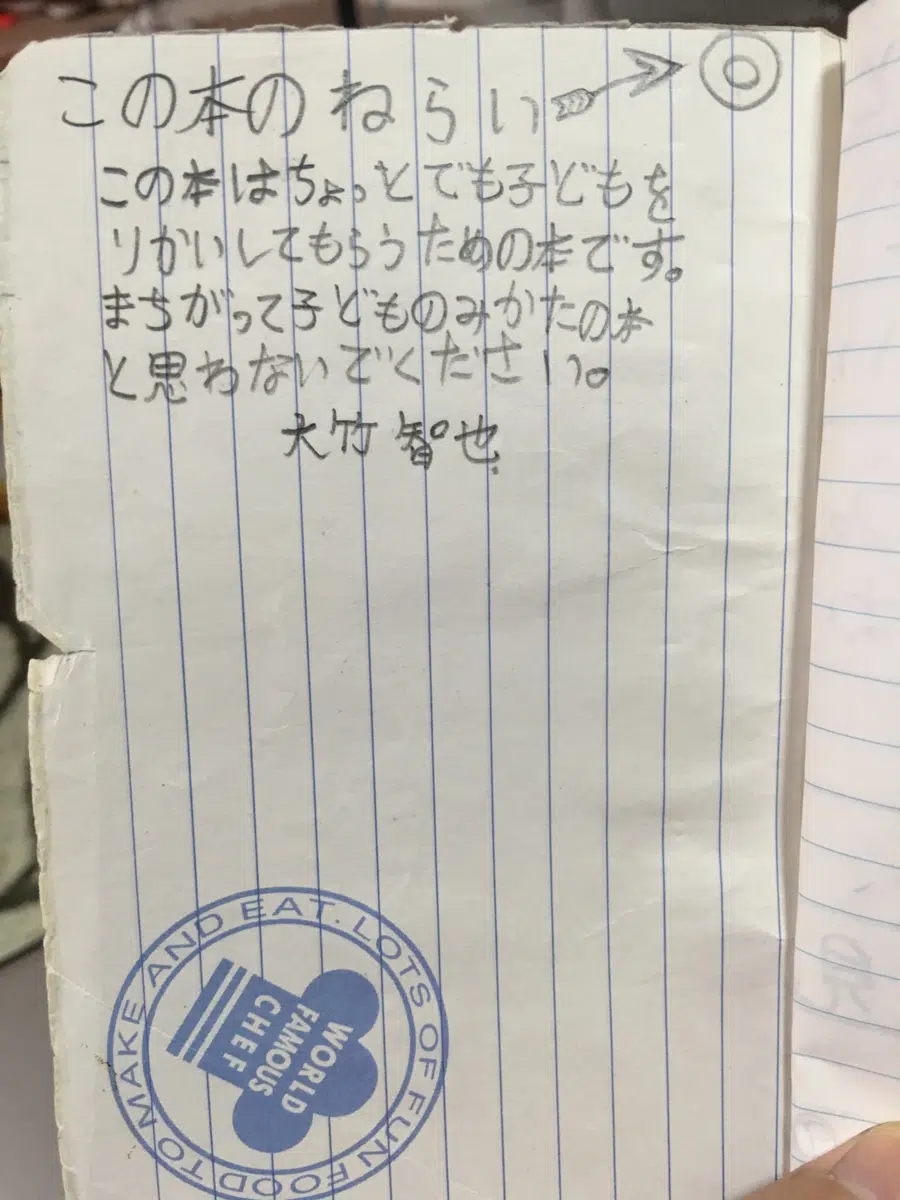 この本のねらい
この本はちょっとでも子どもを
りかいしてもらうための本です。
まちがって子どものみかたの本
と思わないでください。
大竹智也
FOOD TO MAKE AND EAT. LOTS OF FUN
WORLD
FAMOUS
CHEF